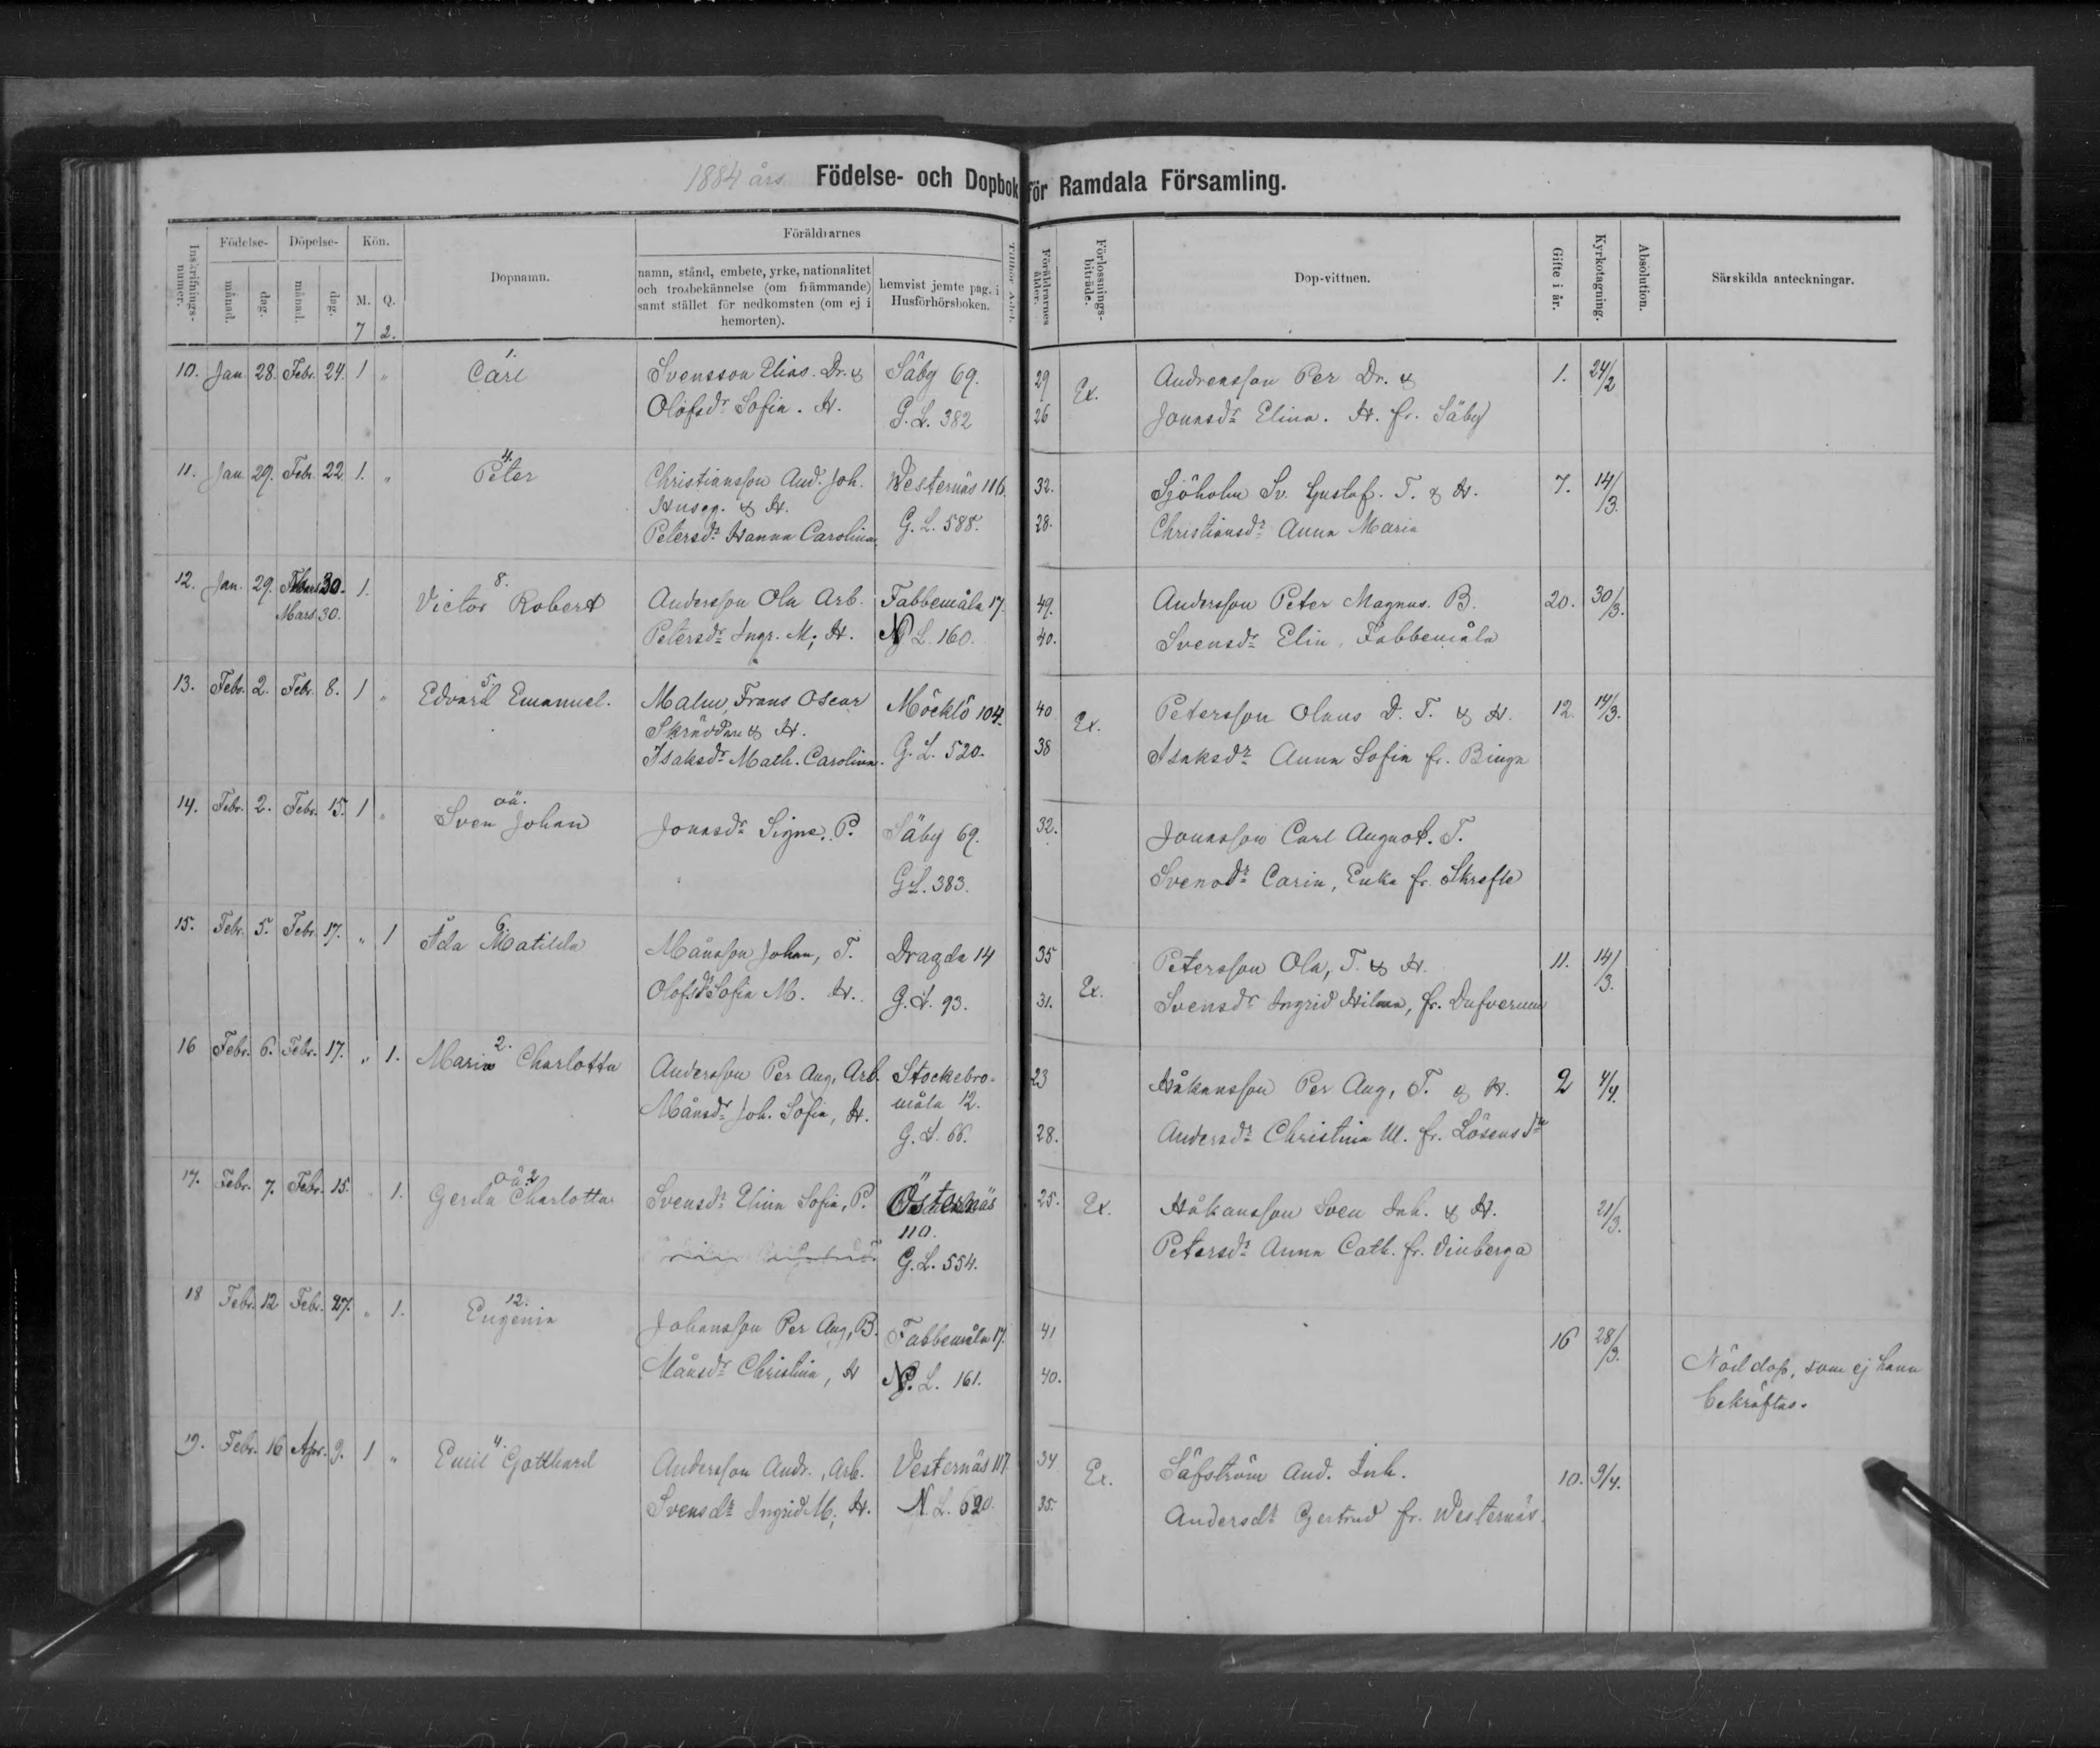 1884 års Födelse- och Dopbok för Ramdala Församling.
Inskrifnings-numer.
Födelse-
månad. dag.
Döpelse-
månad. dag.
Kön.
M. Q.
7 2.
Dopnamn.
Föräldrarnes
namn, stånd, embete, yrke, nationalitet
och trosbekännelse (om främmande)
samt stället för nedkomsten (om ej i
hemorten).
hemvist jemte pag. i
Husförhörsboken.
Tillhör Adel.
Föräldrarnes ålder.
Förlossnings-biträde.
Dop-vittnen.
Gifte i år.
Kyrkotagning.
Absolution.
Särskilda anteckningar.
10. Jan. 28. Febr. 24. 1 „
1.
Carl
Svensson Elias. Dr. &
Olofsdr Sofia. H.
Säby 69.
G. L. 382
29
26
Ex.
Andreasson Per Dr. &
Jonasdr Elina. H. fr. Säby
1. 24/2
11. Jan. 29. Febr. 22 1. „
4.
Peter
Christiansson And. Joh.
Huseg. & H.
Petersdr Hanna Carolina
Westernäs 116
G. L. 588.
32.
28.
Sjöholm Sv. Gustaf. T. & H.
Christiansdr Anna Maria
7. 14/3.
12. Jan. 29. 30. 1.
Mars 30.
8.
Victor Robert
Andersson Ola Arb.
Petersdr Ingr. M, H.
Fabbemåla 17
N L. 160.
49.
40.
Andersson Peter Magnus. B.
Svensdr Elin, Fabbemåla
20. 30/3.
13. Febr. 2. Febr. 8. 1 „
5.
Edvard Emanuel.
Malm, Frans Oscar
Skräddare & H.
Isaksdr Math. Carolina.
Möcklö 104.
G. L. 520.
40
38
Ex.
Petersson Olaus D. T. & H.
Isaksdr Anna Sofia fr. Binga
12. 14/3.
14. Febr. 2. Febr. 15. 1 „
oä.
Sven Johan
Jonasdr Signe. P.
Säby 69.
G L. 383.
32.
Jonasson Carl August. T.
Svensdr Carin, Enka fr. Skrefle
15. Febr. 5. Febr. 17. „ 1
6
Ida Matilda
Månsson Johan, T.
Olofsdr Sofia M. H.
Dragda 14
G. L. 93.
35
31.
Ex.
Petersson Ola, T. & H.
Svensdr Ingrid Hilma, fr. Dufverum
11. 14/3.
16 Febr. 6. Febr. 17. „ 1.
2.
Maria Charlotta
Andersson Per Aug, Arb.
Månsdr Joh. Sofia, H.
Stockebro-
måla 12.
G. L. 66.
23
28.
Håkansson Per Aug, T. & H.
Andersdr Christina M. fr. Lösens
2 4/4.
17. Febr. 7. Febr. 15. 1.
oä 2
Gerda Charlotta
Svensdr Elina Sofia, P.
Österнäs
110.
G. L. 554.
25.
Ex.
Håkansson Sven Inh. & H.
Petersdr Anna Cath. fr. Vinberga
21/3.
18 Febr. 12 Febr. 27. „ 1.
12.
Eugenia
Johansson Per Aug, B.
Månsdr Christina, H
Fabbemåla 17.
N. L. 161.
41
40.
16 28/3.
Nöd dop, som ej hann
bekräftas.
19. Febr. 16 Apr. 9. 1 „
4.
Emil Gotthard
Andersson Andr., Arb.
Svensdr Ingrid M, H.
Vesternäs 117
N. L. 620.
34
35.
Ex.
Säfström And. Inh.
Andersdr Gertrud fr. Westernäs.
10. 9/4.